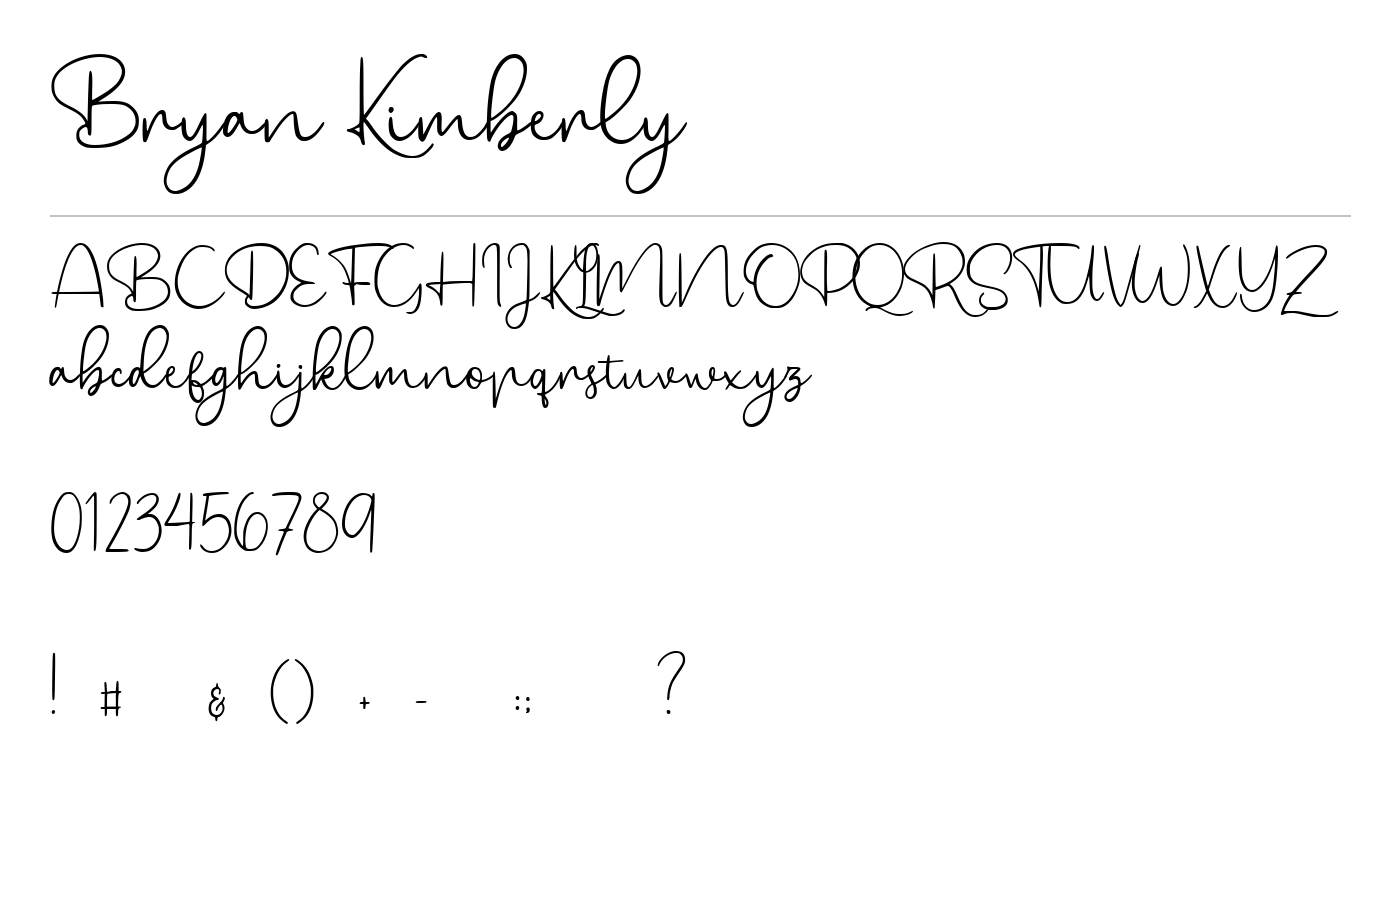 Bryan Kimberly
ABCDEFGHIJKLMNOPQRSTUVWXYZ
abcdefghijklmnopqrstuvwxyz
0123456789
! # & () + - :; ?